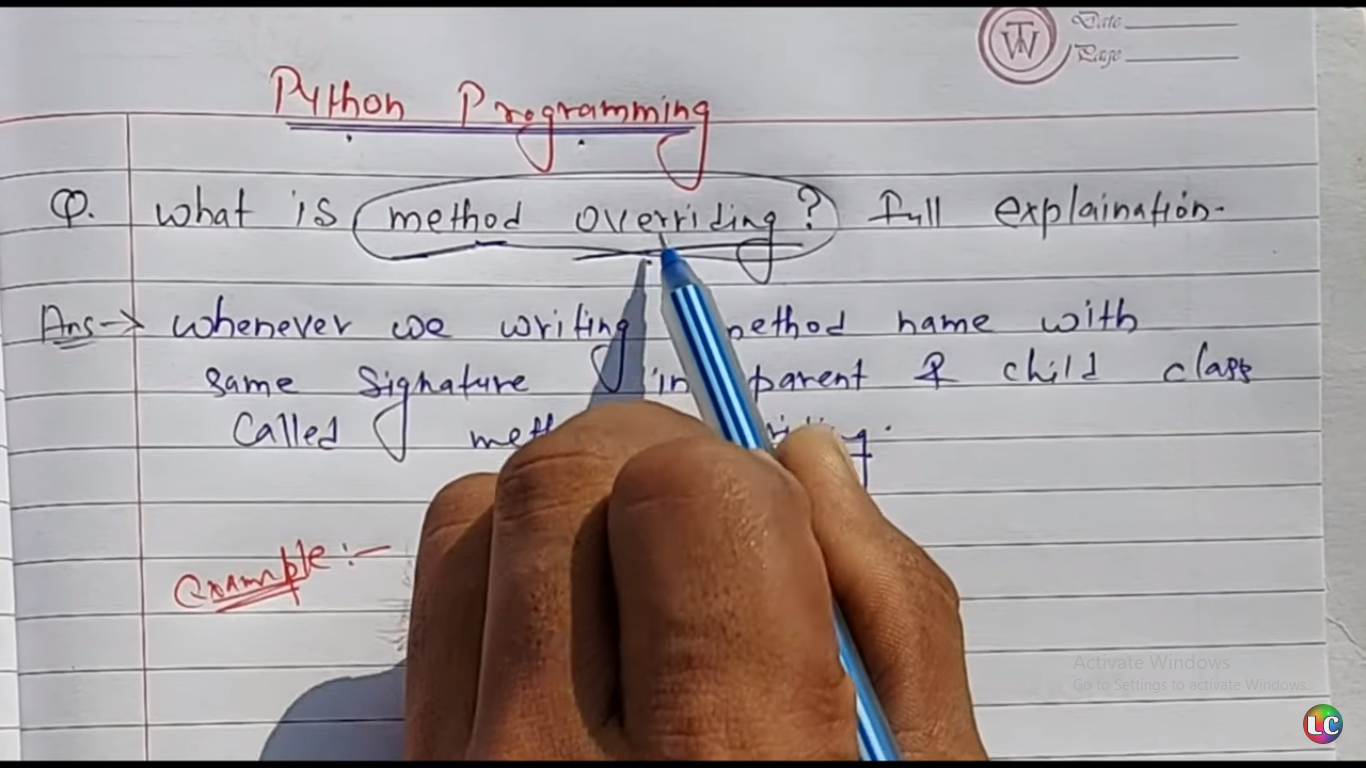 Date
Page
Python Programming
Q. what is method overriding? Full explaination.
Ans→ whenever we writing method name with
same Signature in parent & child class
Called
example :-
Activate Windows
Go to Settings to activate Windows.
LC